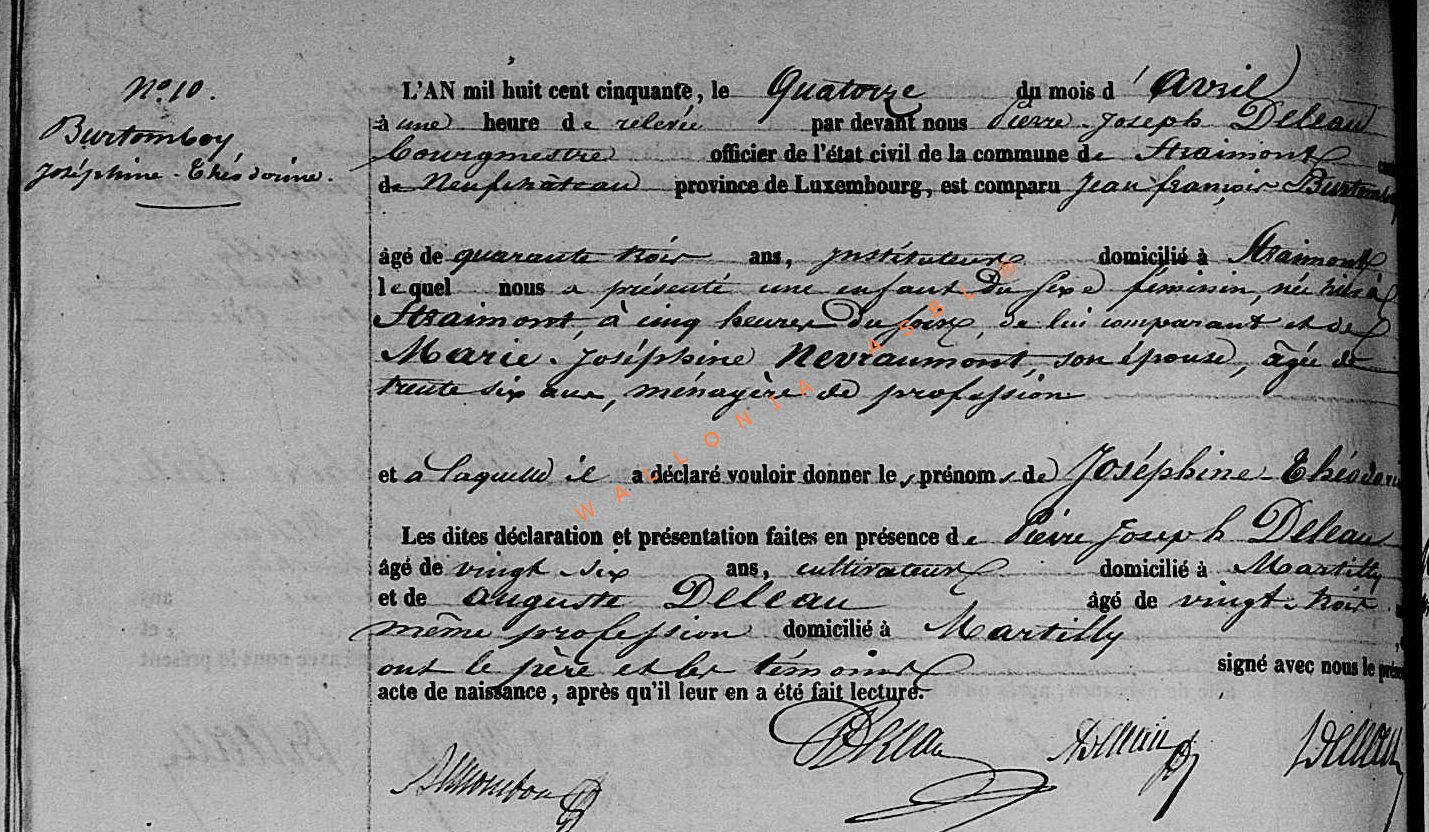 N° 10.
Burtomboy,
Joséphine-Théodorine.
L'AN mil huit cent cinquante, le Quatorze du mois d'Avril
à une heure de relevée par devant nous Pierre-Joseph Deleau
bourgmestre officier de l'état civil de la commune de Straimont
de Neufchâteau province de Luxembourg, est comparu Jean françois
âgé de quarante trois ans, instituteur domicilié à Straimont
lequel nous a présenté une enfant du sexe féminin, née à
Straimont, à cinq heures du de lui comparant et de
Marie-Joséphine Nevraumont, son épouse, âgée de
trente six ans, ménagère de profession
et à laquelle il a déclaré vouloir donner les prénoms de Joséphine-
Les dites déclaration et présentation faites en présence de Pierre Joseph Deleau
âgé de vingt six ans, cultivateur domicilié à Martilly
et de auguste Deleau âgé de vingt-trois
même profession domicilié à Martilly
ont le père et les témoins signé avec nous le
acte de naissance, après qu'il leur en a été fait lecture.
WALLONIA ASBL ©